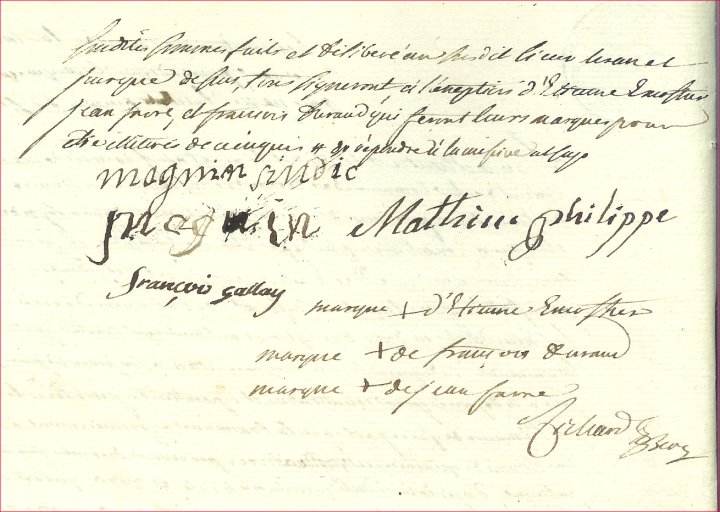 susdites sommes faits et délibéré au susdit lieu lesan et
jusque de plus, tous signeront à l'exeption d'Etienne
jean favre, et fransois durand qui feront leurs marques pour
être illitérés de ce enquis
magnin sindic
magnin Mathieu philippe
françois gallay
marque + d'Etienne
marque + de françois durand
marque + de jean favre
Richard